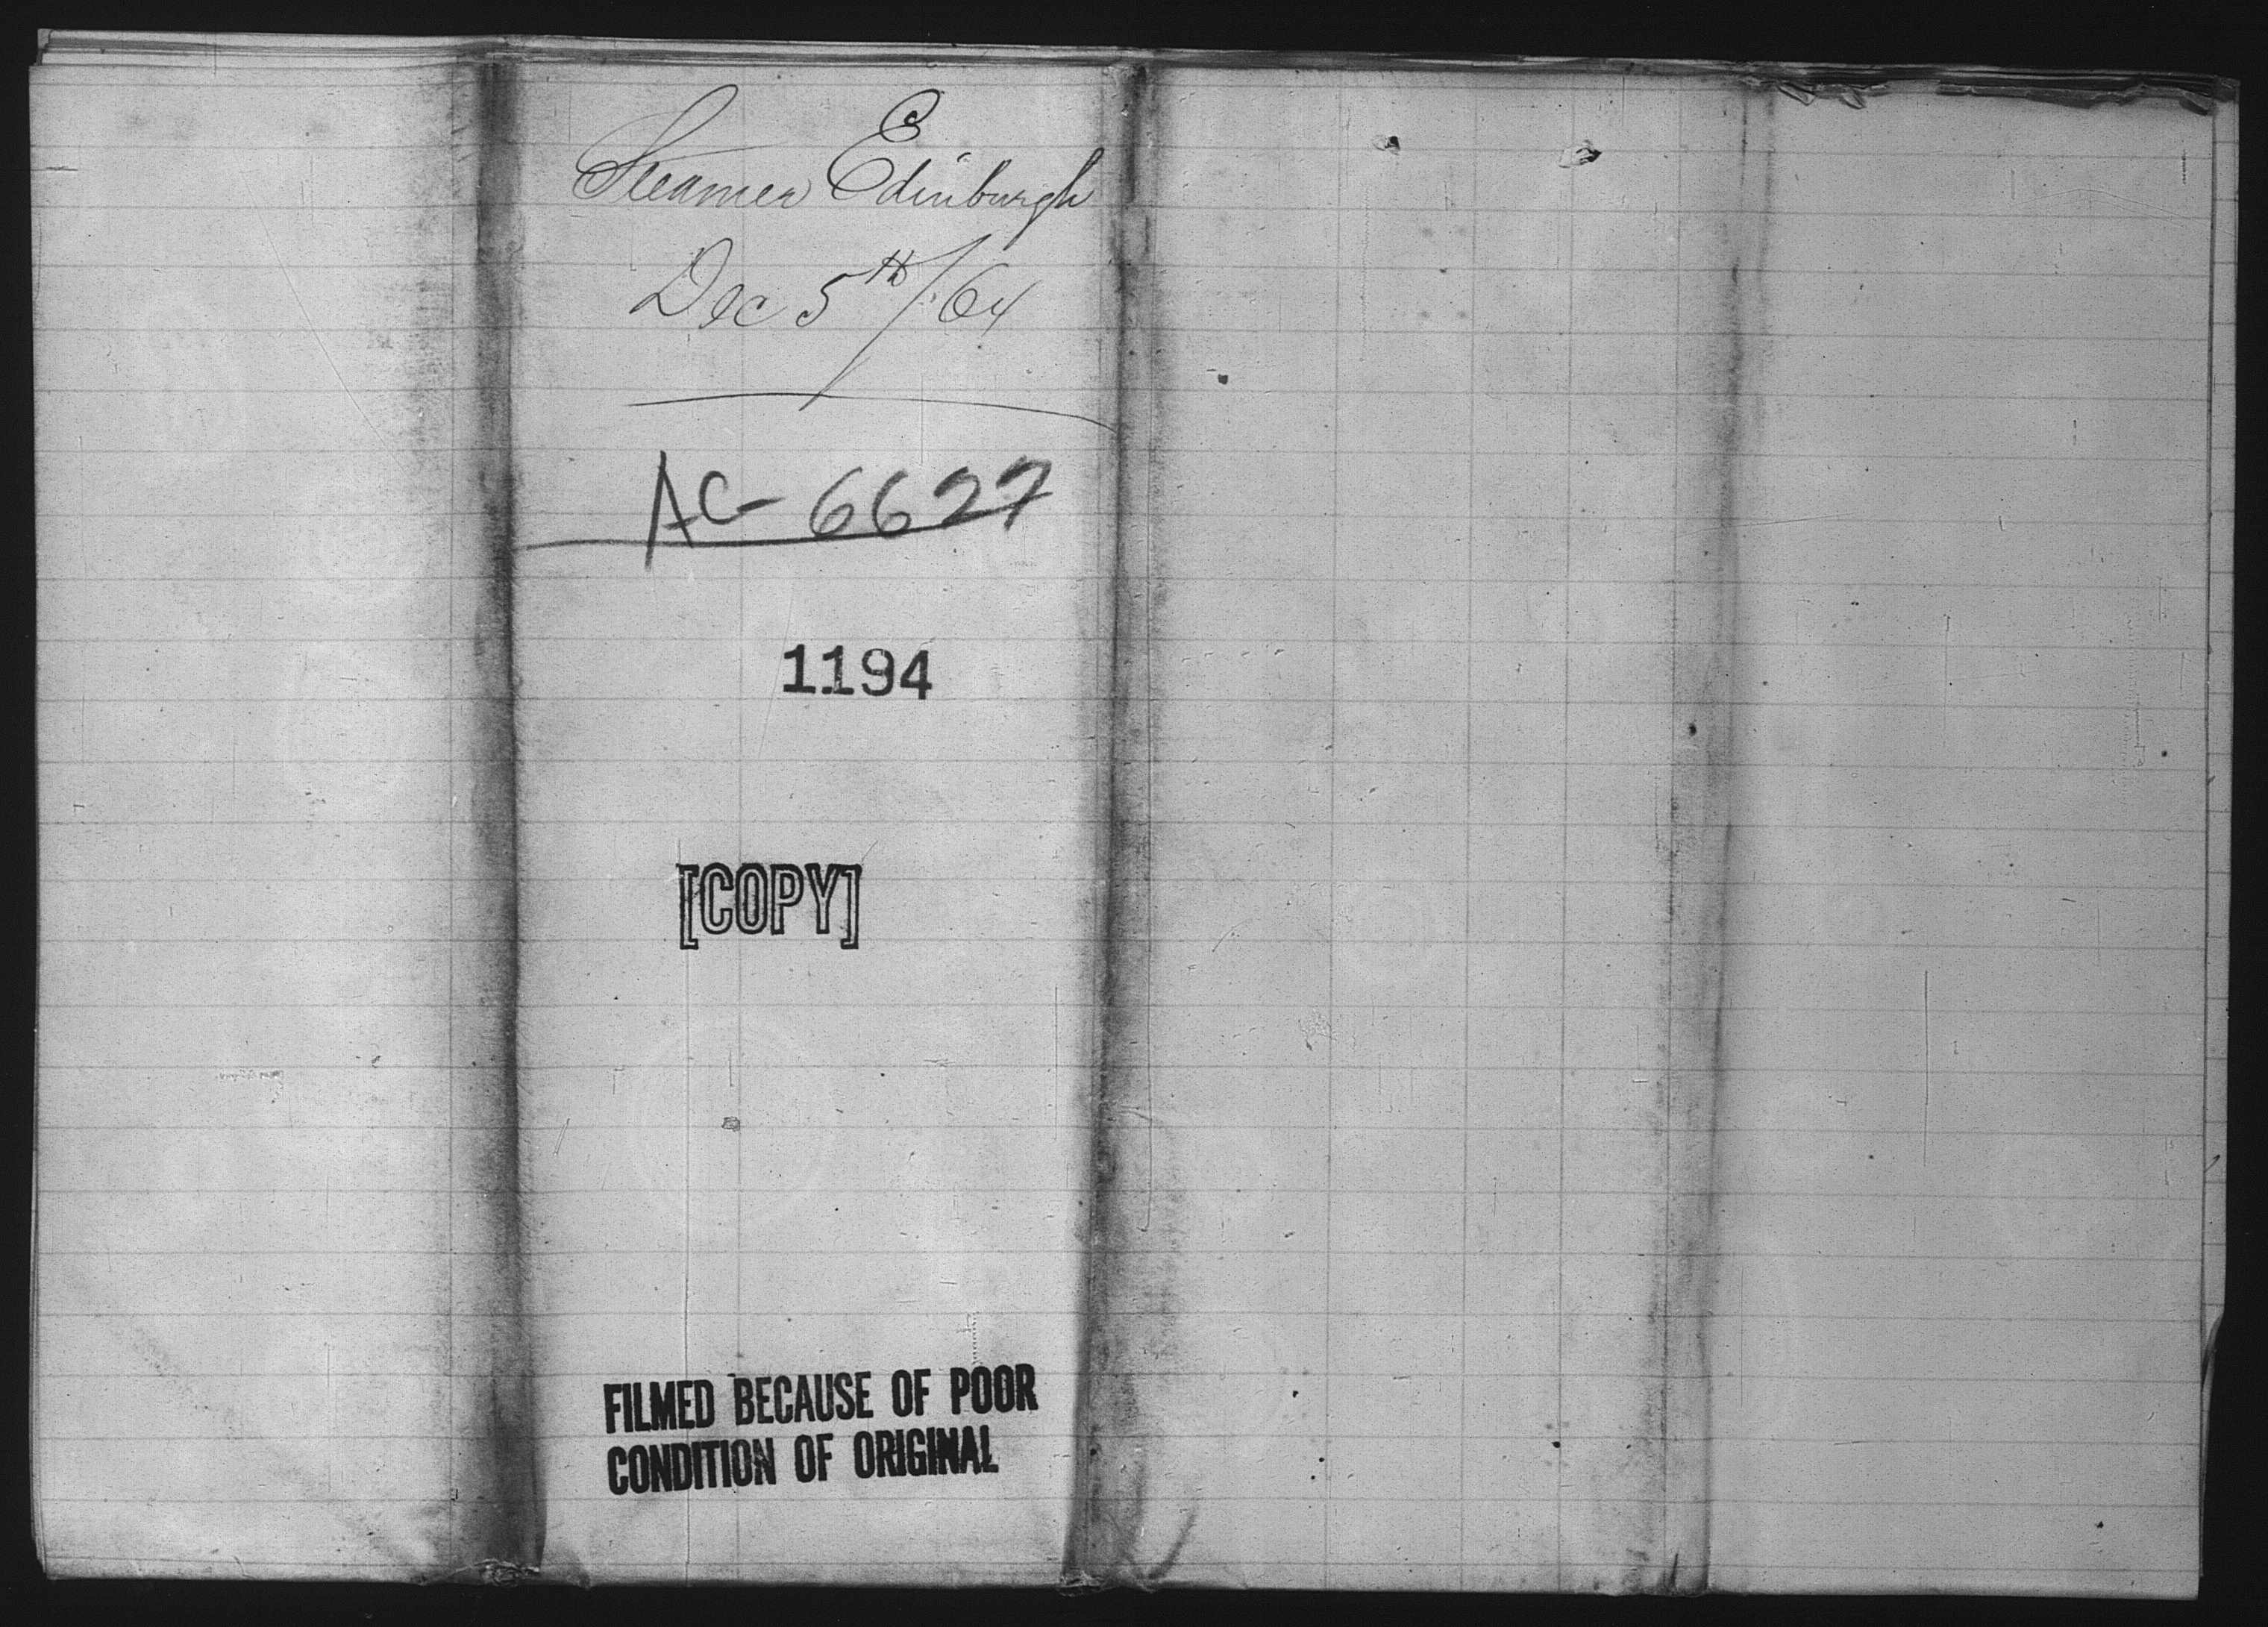 Steamer Edinburgh
Dec 5th/64
AC-6627
1194
[COPY]
FILMED BECAUSE OF POOR
CONDITION OF ORIGINAL